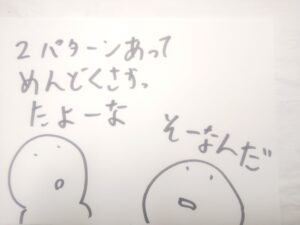 2パターンあって
めんどくさかっ
たよーな
そーなんだ